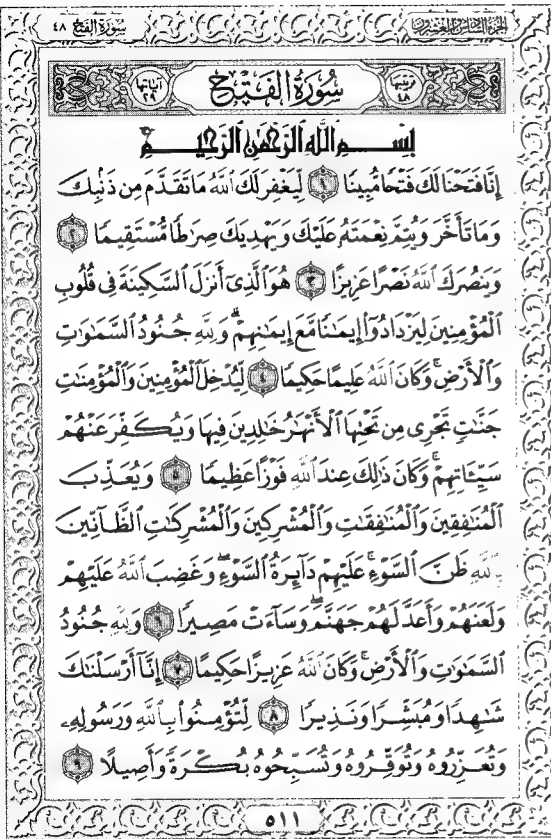 الجزء السادس والعشرون سورة الفتح ٤٨
ترتيبها ٤٨ سُورَةُ الْفَتْحِ آياتها ٢٩
بِسْمِ اللَّهِ الرَّحْمَٰنِ الرَّحِيمِ
إِنَّا فَتَحْنَا لَكَ فَتْحًا مُّبِينًا ١ لِّيَغْفِرَ لَكَ ٱللَّهُ مَا تَقَدَّمَ مِن ذَنۢبِكَ
وَمَا تَأَخَّرَ وَيُتِمَّ نِعْمَتَهُۥ عَلَيْكَ وَيَهْدِيَكَ صِرَٰطًا مُّسْتَقِيمًا ٢
وَيَنصُرَكَ ٱللَّهُ نَصْرًا عَزِيزًا ٣ هُوَ ٱلَّذِىٓ أَنزَلَ ٱلسَّكِينَةَ فِى قُلُوبِ
ٱلْمُؤْمِنِينَ لِيَزْدَادُوٓا۟ إِيمَٰنًا مَّعَ إِيمَٰنِهِمْ ۗ وَلِلَّهِ جُنُودُ ٱلسَّمَٰوَٰتِ
وَٱلْأَرْضِ ۚ وَكَانَ ٱللَّهُ عَلِيمًا حَكِيمًا ٤ لِّيُدْخِلَ ٱلْمُؤْمِنِينَ وَٱلْمُؤْمِنَٰتِ
جَنَّٰتٍ تَجْرِى مِن تَحْتِهَا ٱلْأَنْهَٰرُ خَٰلِدِينَ فِيهَا وَيُكَفِّرَ عَنْهُمْ
سَيِّـَٔاتِهِمْ ۚ وَكَانَ ذَٰلِكَ عِندَ ٱللَّهِ فَوْزًا عَظِيمًا ٥ وَيُعَذِّبَ
ٱلْمُنَٰفِقِينَ وَٱلْمُنَٰفِقَٰتِ وَٱلْمُشْرِكِينَ وَٱلْمُشْرِكَٰتِ ٱلظَّآنِّينَ
بِٱللَّهِ ظَنَّ ٱلسَّوْءِ ۚ عَلَيْهِمْ دَآئِرَةُ ٱلسَّوْءِ ۖ وَغَضِبَ ٱللَّهُ عَلَيْهِمْ
وَلَعَنَهُمْ وَأَعَدَّ لَهُمْ جَهَنَّمَ ۖ وَسَآءَتْ مَصِيرًا ٦ وَلِلَّهِ جُنُودُ
ٱلسَّمَٰوَٰتِ وَٱلْأَرْضِ ۚ وَكَانَ ٱللَّهُ عَزِيزًا حَكِيمًا ٧ إِنَّآ أَرْسَلْنَٰكَ
شَٰهِدًا وَمُبَشِّرًا وَنَذِيرًا ٨ لِّتُؤْمِنُوا۟ بِٱللَّهِ وَرَسُولِهِۦ
وَتُعَزِّرُوهُ وَتُوَقِّرُوهُ وَتُسَبِّحُوهُ بُكْرَةً وَأَصِيلًا ٩
٥١١